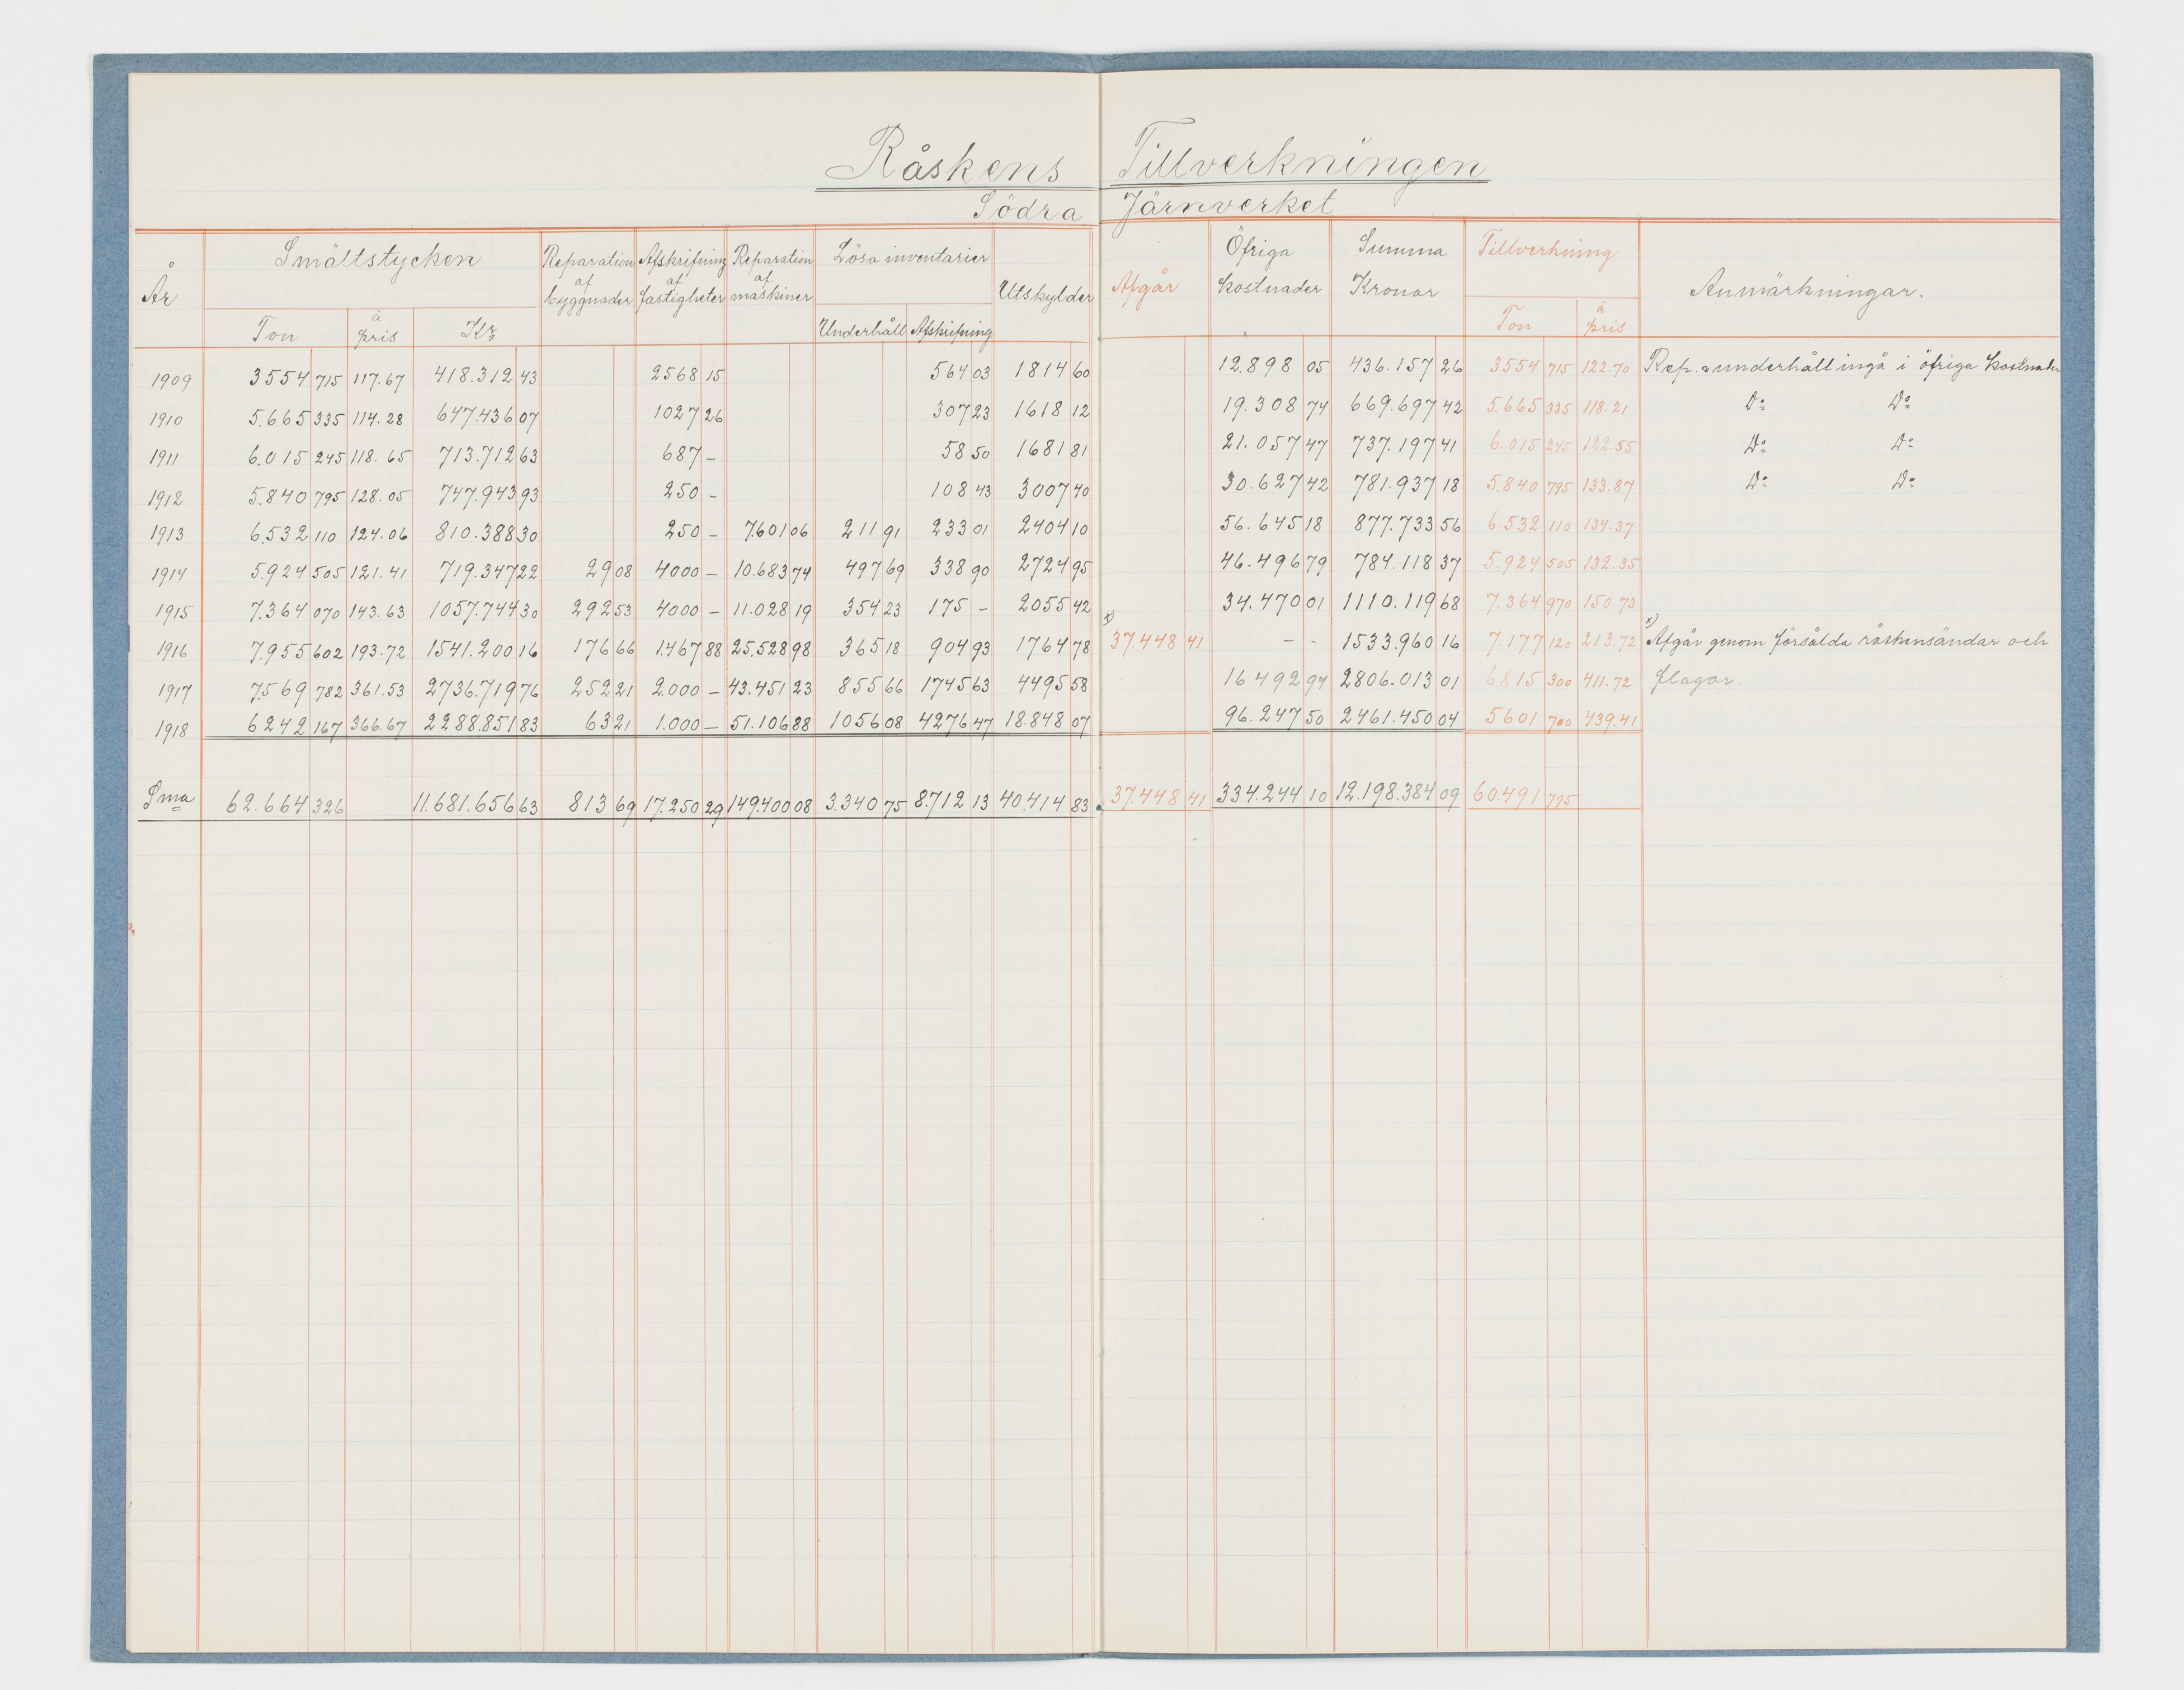 Råskens Tillverkningen
Södra Järnverket
År Smältstycken Reparation af byggnader Afskrifning af fastigheter Reparation af maskiner Lösa inventarier Utskylder Afgår Öfriga kostnader Summa Kronor Tillverkning Anmärkningar.
Ton à pris Kr Underhåll Afskrifning Ton à pris
1909 3554 715 117.67 418.312 43 2568 15 564 03 1814 60 12.898 05 436.157 26 3554 715 122.70 Rep. o underhåll ingå i öfriga kostnader
1910 5.665 335 114.28 647.436 07 1027 26 307 23 1618 12 19.308 74 669.697 42 5.665 335 118.21 Do Do
1911 6.015 245 118.65 713.712 63 687 – 58 50 1681 81 21.057 47 737.197 41 6.015 245 122.55 Do Do
1912 5.840 795 128.05 747.943 93 250 – 108 43 3007 40 30.627 42 781.937 18 5.840 795 133.87 Do Do
1913 6.532 110 124.06 810.388 30 250 – 7.601 06 211 91 233 01 2404 10 56.645 18 877.733 56 6.532 110 134.37
1914 5.924 505 121.41 719.347 22 29 08 4000 – 10.683 74 497 69 338 90 2724 95 46.496 79 784.118 37 5.924 505 132.35
1915 7.364 070 143.63 1057.744 30 292 53 4000 – 11.028 19 354 23 175 – 2055 42 34.470 01 1110.119 68 7.364 970 150.73
1916 7.955 602 193.72 1541.200 16 176 66 1.467 88 25.528 98 365 18 904 93 1764 78 x) 37.448 41 – - 1533.960 16 7.177 120 213.72 x) Afgår genom försålda råskensändar och
1917 7.569 782 361.53 2736.719 76 252 21 2.000 – 43.451 23 855 66 1745 63 4495 58 16 492 94 2806.013 01 6.815 300 411.72 flagor.
1918 6242 167 366.67 2288.851 83 63 21 1.000 – 51.106 88 1056 08 4276 47 18.848 07 96.247 50 2461.450 04 5601 700 439.41
Sma 62.664 326 11.681.656 63 813 69 17.250 29 149.400 08 3.340 75 8.712 13 40.414 83 37.448 41 334.244 10 12.198.384 09 60.491 795